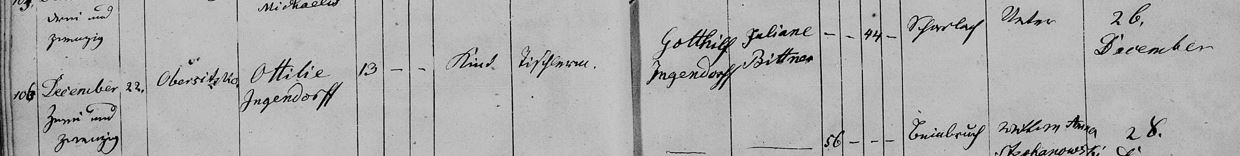 Michaelis
drei und
zwanzig
106 December 22. Obersitzko Ottilie 13 - - Kind Tischlerm.
Ingendorff
Zwei und
zwanzig
Gotthilf Juliane - - 44 - Scharlach Vater 26.
Ingendorff Bittner December
56 - - - Beinbruch Anna 28.